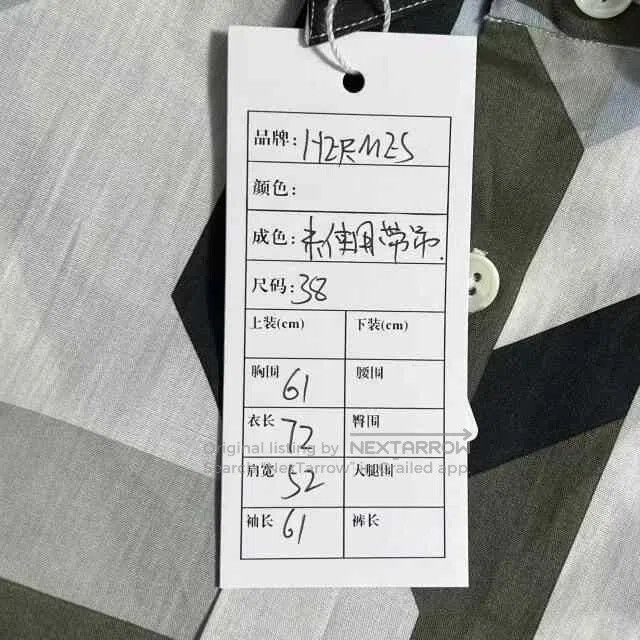 品牌: HERMES
颜色:
成色: 未使用带吊.
尺码: 38
上装(cm) 下装(cm)
胸围 61 腰围
衣长 72 臀围
Original listing by NEXTARROW
Search "NexTarrow" in Grailed app
肩宽 52 大腿围
袖长 61 裤长